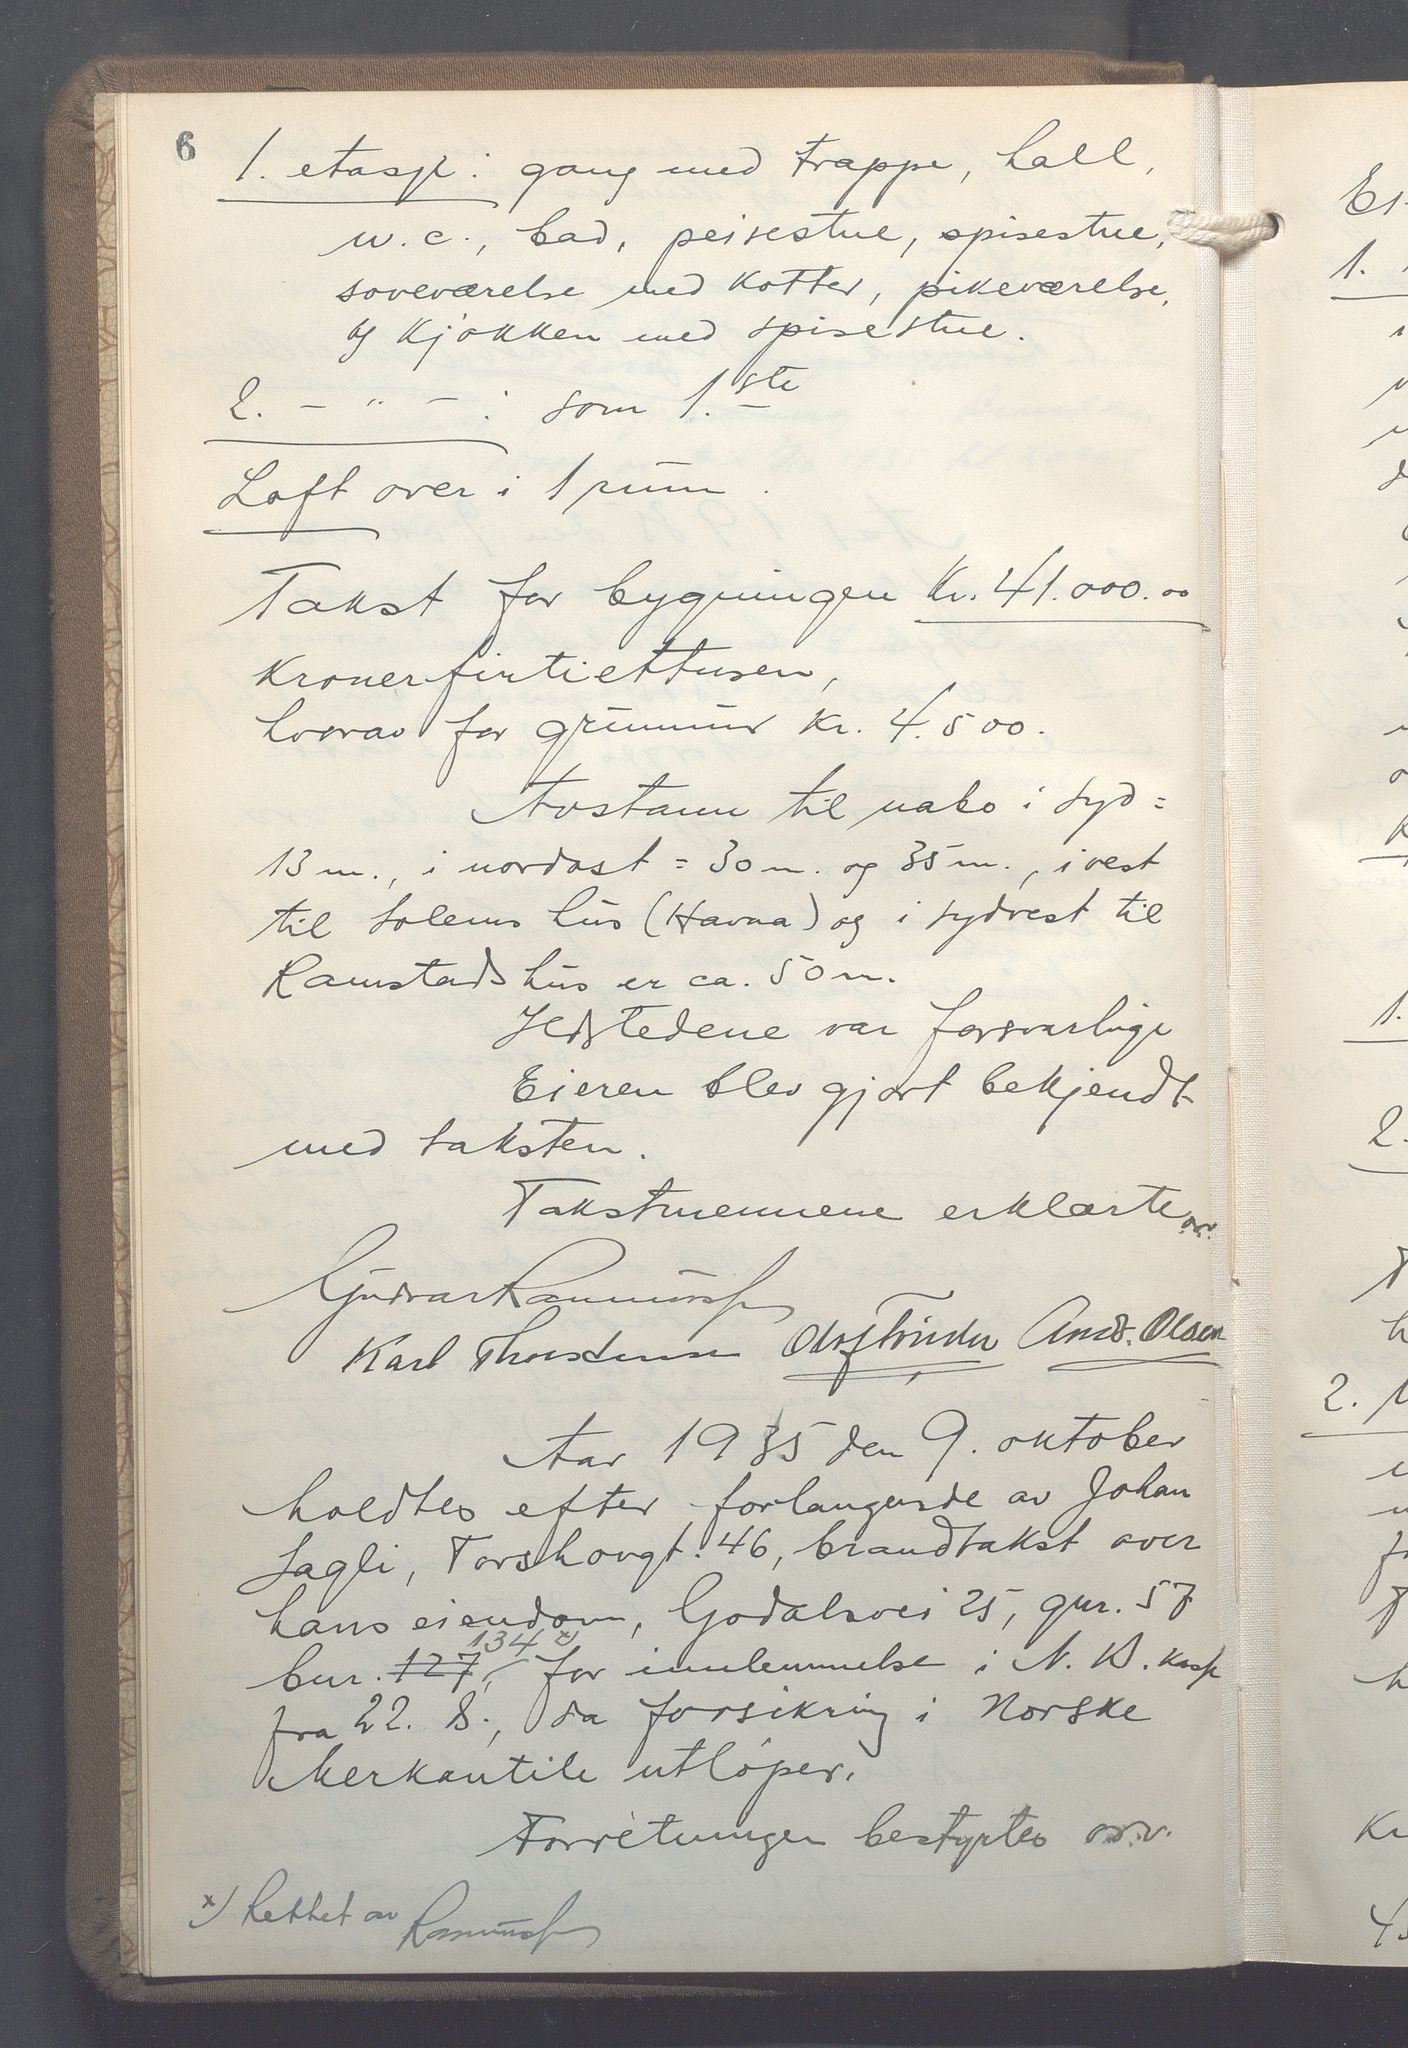 6
1. etasje: gang med trappe, hall,
w.c., bad, peisestue, spisestue,
soveværelse med kotter, pikeværelse,
og kjøkken med spisestue.
2. - " - : som 1.ste
Loft over i 1 rum.
Takst for bygningen Kr. 41.000.00
kroner firtiettusen,
hvorav for grunmur kr. 4.500.
Avstann til nabo i syd =
13 m., i nordøst = 30 m. og 35 m., i vest
til Solems hus (Havna) og i sydvest til
Ramstads hus er ca. 50 m.
Ildstedene var forsvarlige
Eieren blev gjort bekjendt
med taksten.
Takstmennene erklærte osv.
Karl Thorstensen Ands. Olsen
Aar 1935 den 9. oktober
holdtes efter forlangende av Johan
Sagli, Torshovgt. 46, brandtakst over
hans eiendom, Godalsvei 25, gnr. 57
134 x)
bnr. 127, for innlemmelse i N. B. kasse
fra 22. 8., da forsikring i Norske
Merkantile utløper.
Forretningen bestyrtes osv.
x) Rettet av
Er
1.
1.
2.
2.
Kr